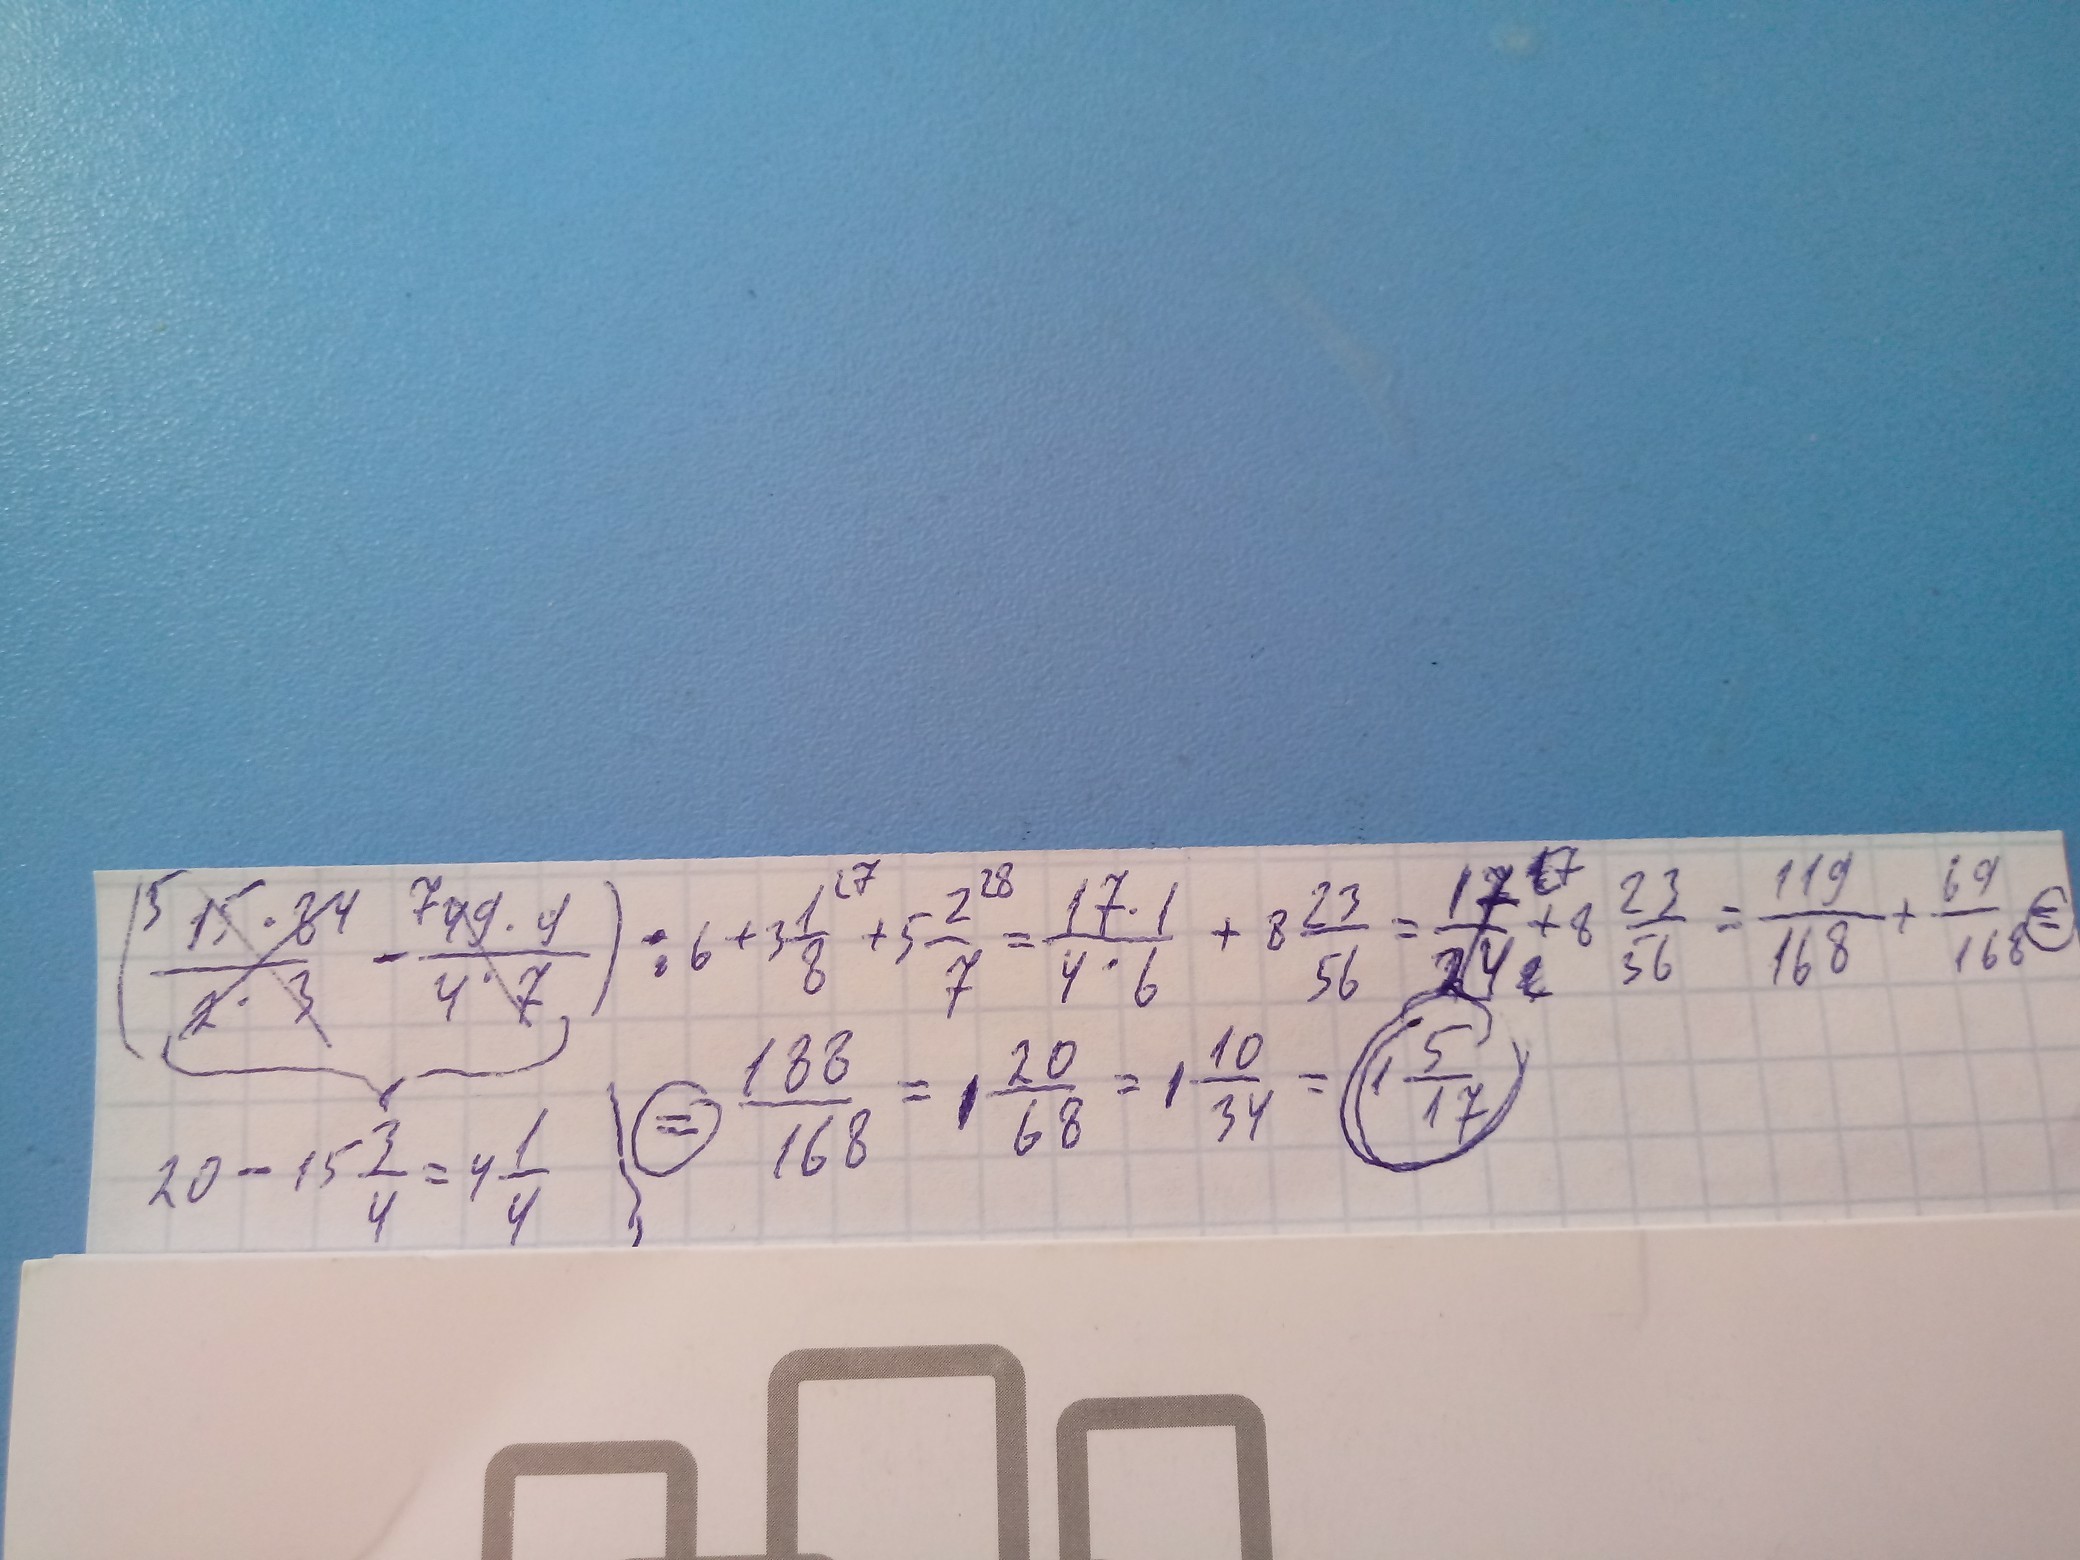 (⁵ 15·84/2·3 - ⁷ 49·9/4·7) : 6 + 3 1/8 ²⁷ + 5 2/7 ²⁸ = 17·1/4·6 + 8 23/56 = 17/24 ¹⁷ + 8 23/56 = 119/168 + 69/168 =
20 - 15 3/4 = 4 1/4 } = 188/168 = 1 20/68 = 1 10/34 = 1 5/17